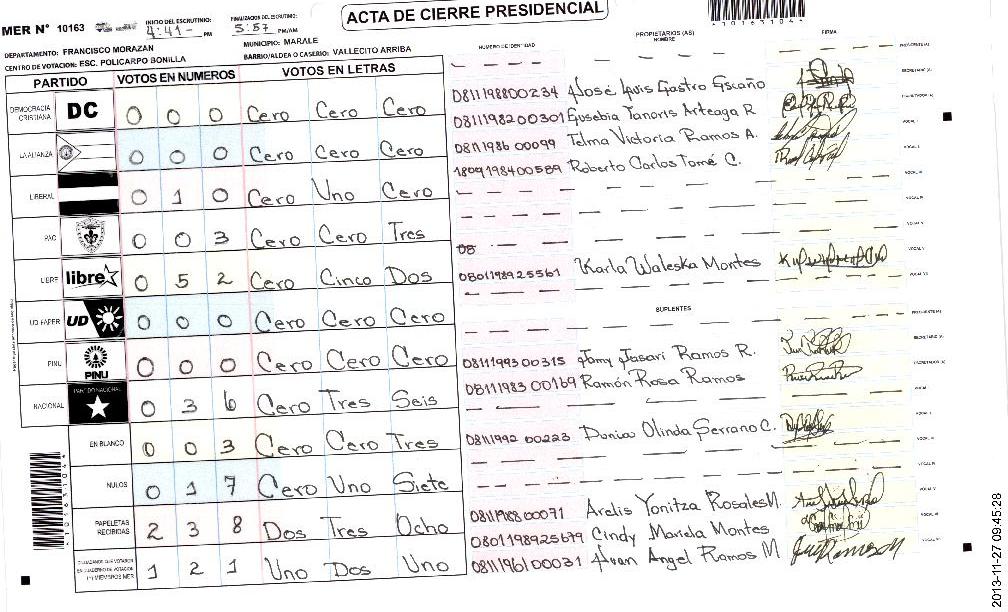 ACTA DE CIERRE PRESIDENCIAL
MER N° 10163
INICIO DEL ESCRUTINIO: 4:41- PM
FINALIZACION DEL ESCRUTINIO: 5:57 PM/AM
DEPARTAMENTO: FRANCISCO MORAZAN
MUNICIPIO: MARALE
CENTRO DE VOTACION: ESC. POLICARPO BONILLA
BARRIO/ALDEA O CASERIO: VALLECITO ARRIBA
PARTIDO VOTOS EN NUMEROS VOTOS EN LETRAS
DEMOCRACIA CRISTIANA DC 0 0 0 Cero Cero Cero
LA ALIANZA 0 0 0 Cero Cero Cero
LIBERAL 0 1 0 Cero Uno Cero
PAC 0 0 3 Cero Cero Tres
LIBRE libre 0 5 2 Cero Cinco Dos
UD FAPER UD 0 0 0 Cero Cero Cero
PINU PINU 0 0 0 Cero Cero Cero
NACIONAL PARTIDO NACIONAL 0 3 6 Cero Tres Seis
EN BLANCO 0 0 3 Cero Cero Tres
NULOS 0 1 7 Cero Uno Siete
PAPELETAS RECIBIDAS 2 3 8 Dos Tres Ocho
1 2 1 Uno Dos Uno
NUMERO DE IDENTIDAD PROPIETARIOS (AS) NOMBRE FIRMA
0811198800234 José Luis Castro Escaño
0811198200301 Eusebia Tanoris Arteaga R
0811198600099 Telma Victoria Ramos A.
1809198400589 Roberto Carlos Tomé C.
08
0801198925561 Karla Waleska Montes
SUPLENTES
0811199300315 Jamy Jasari Ramos R.
0811198300169 Ramón Rosa Ramos
0811199200223 Dunia Olinda Serrano C.
0811198800071 Arelis Yonitza Rosales M.
0801198925679 Cindy Mariela Montes
0811196100031 Juan Angel Ramos M
2013-11-27 09:45:28